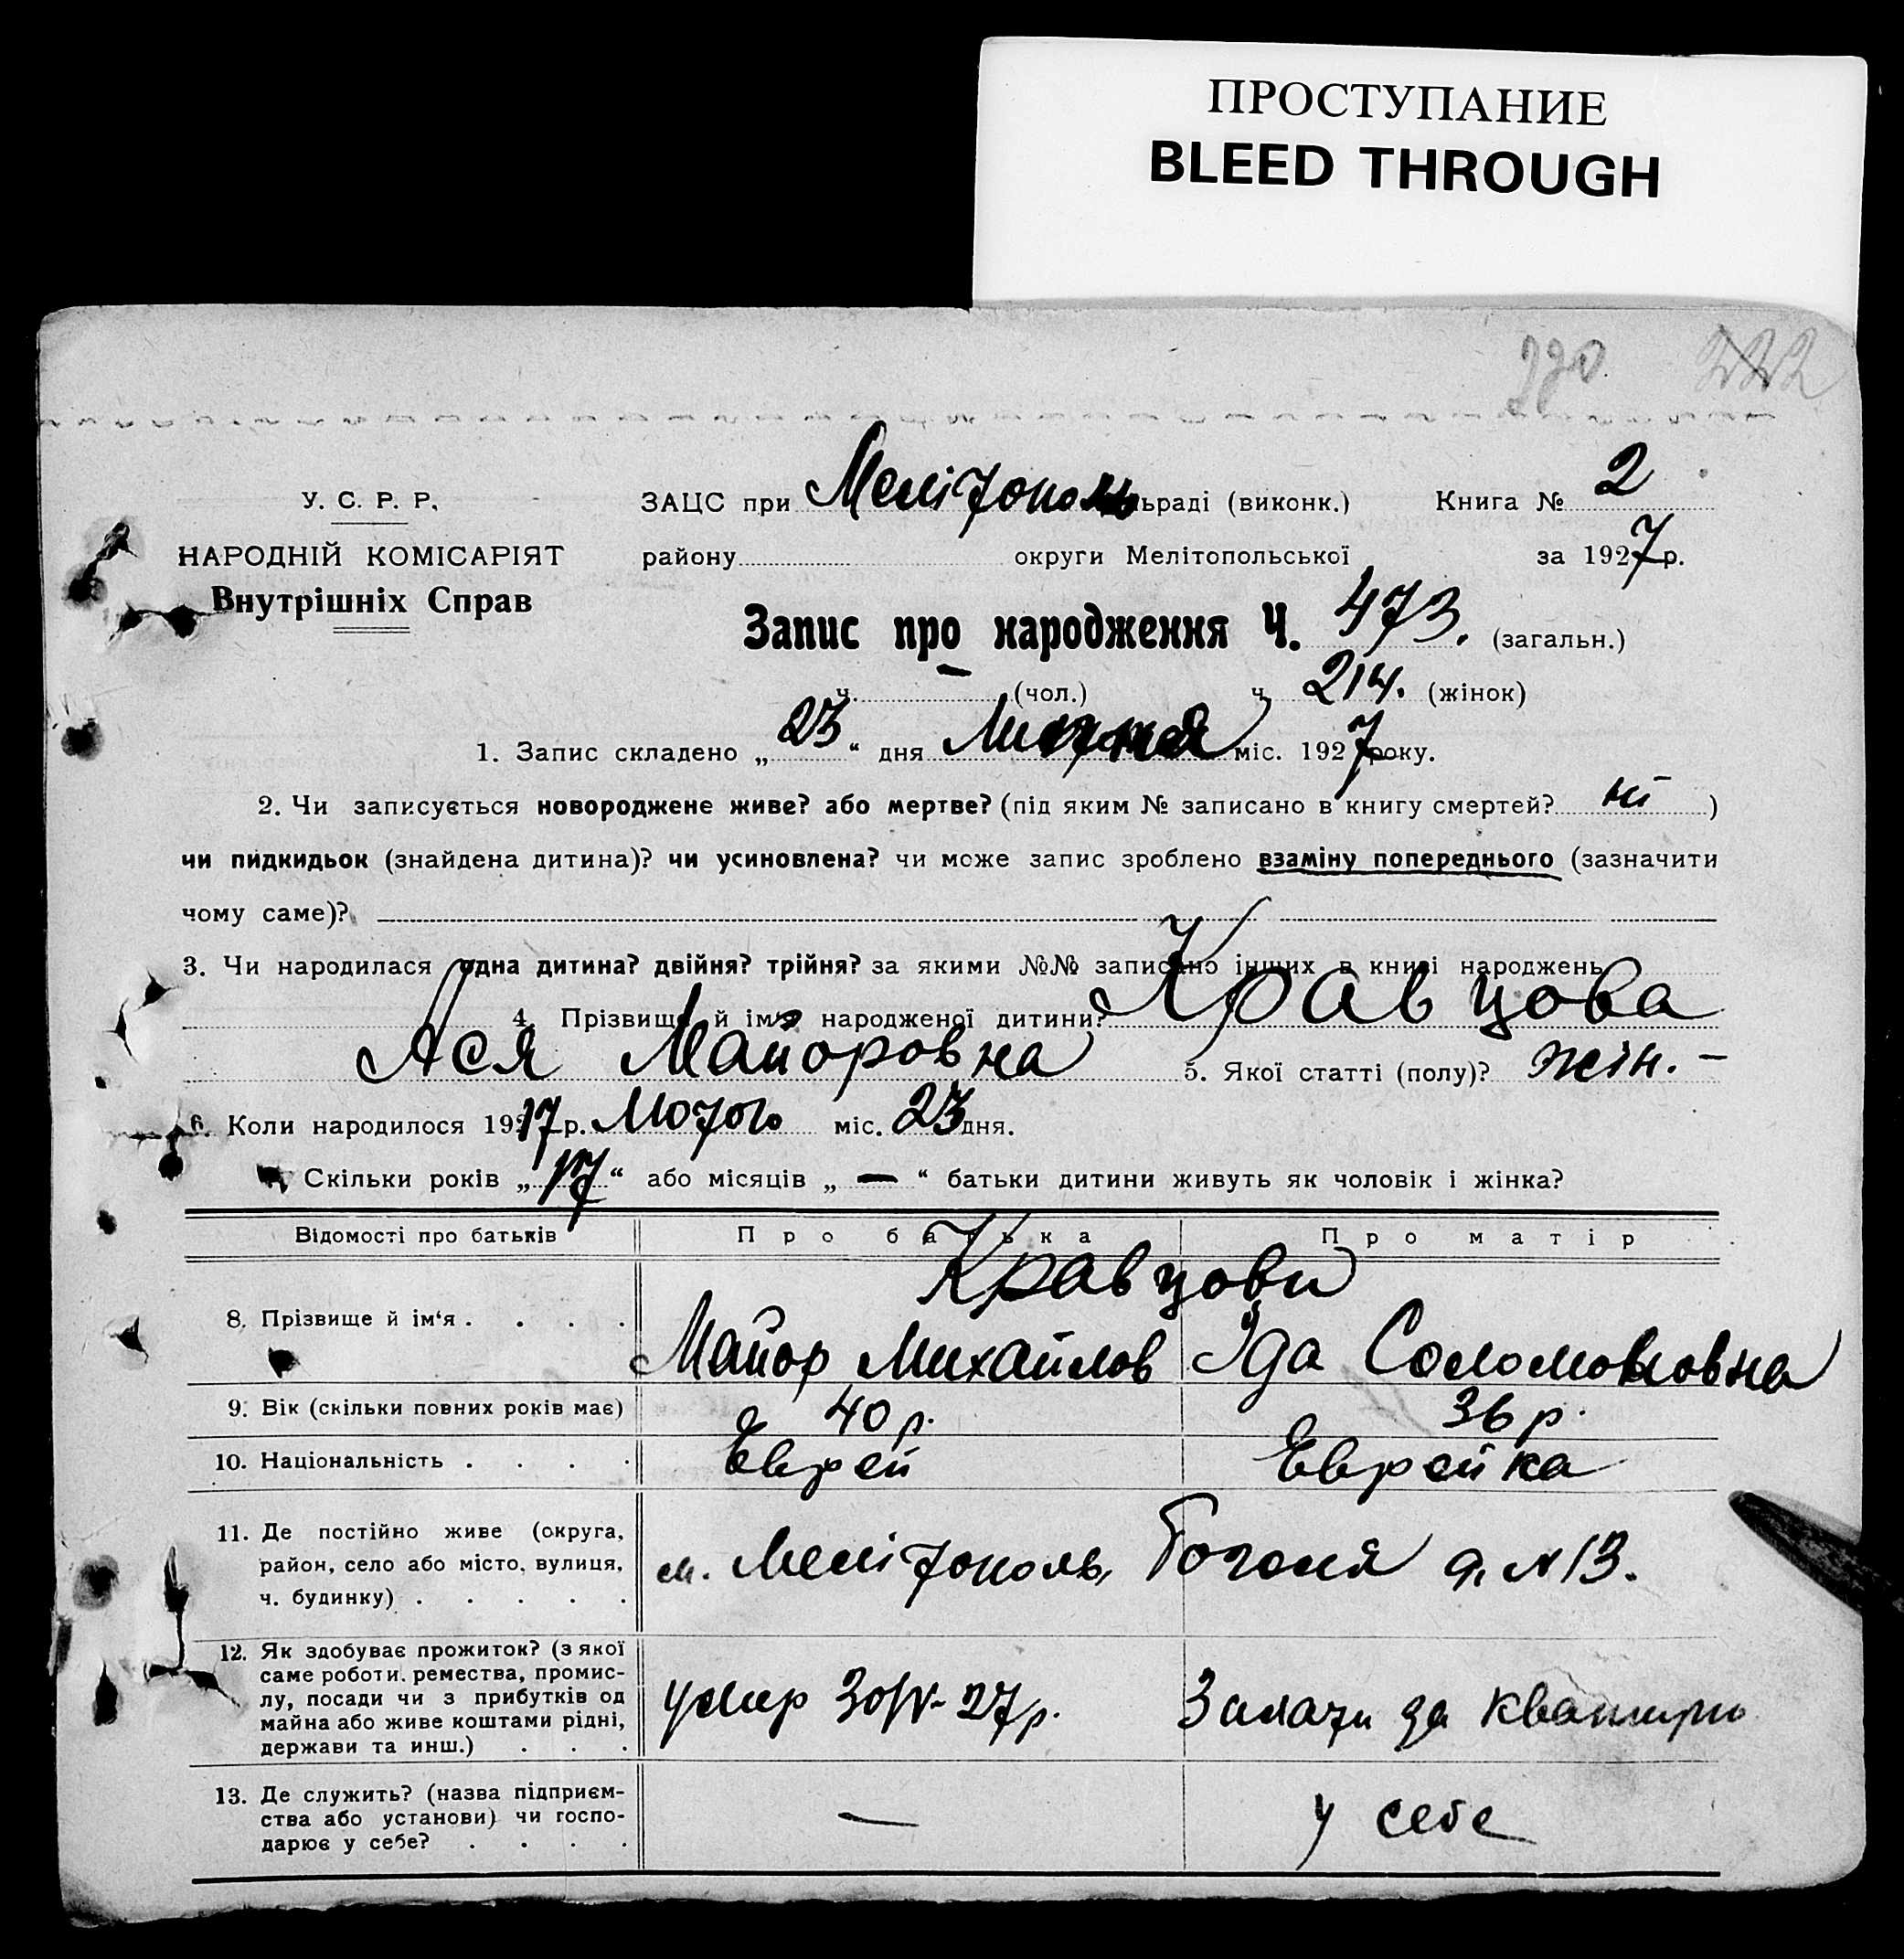 ПРОСТУПАНИЕ
BLEED THROUGH
220 222
У. С. Р. Р.
НАРОДНІЙ КОМІСАРІЯТ
Внутрішніх Справ
ЗАЦС при Мелітополь ьраді (виконк.) Книга № 2
району округи Мелітопольської за 1927 р.
Запис про народження Ч. 473. (загальн.)
ч. — (чол.) ч. 214. (жінок)
1. Запис складено „23“ дня Липня міс. 1927 року.
2. Чи записується новороджене живе? або мертве? (під яким № записано в книгу смертей? ні )
чи пидкидьок (знайдена дитина)? чи усиновлена? чи може запис зроблено взаміну попереднього (зазначити
чому саме)?
3. Чи народилася одна дитина? двійня? трійня? за якими №№ записано інших в книзі народжень
4. Прізвище й ім'я народженої дитини? Кравцова
Ася Майоровна 5. Якої статті (полу)? жін. —
6. Коли народилося 1917 р. Лютого міс. 23 дня.
Скільки років „17“ або місяців „—“ батьки дитини живуть як чоловік і жінка?
Відомості про батьків Про батька Про матір
Кравцови
8. Прізвище й ім'я . . . . Майор Михайлов Іда Соломоновна
9. Вік (скільки повних років має) 40 р. 36 р.
10. Національність . . . . Еврей Еврейка
11. Де постійно живе (округа,
район, село або місто, вулиця,
ч. будинку) . . . . .
м. Мелітополь, Гоголя д. № 13.
12. Як здобуває прожиток? (з якої
саме роботи, ремества, промис-
лу, посади чи з прибутків од
майна або живе коштами рідні,
держави та инш.) . . .
умер 30/IV-27 р. за
13. Де служить? (назва підприєм-
ства або установи) чи госпо-
дарює у себе? . . . .
— у себе